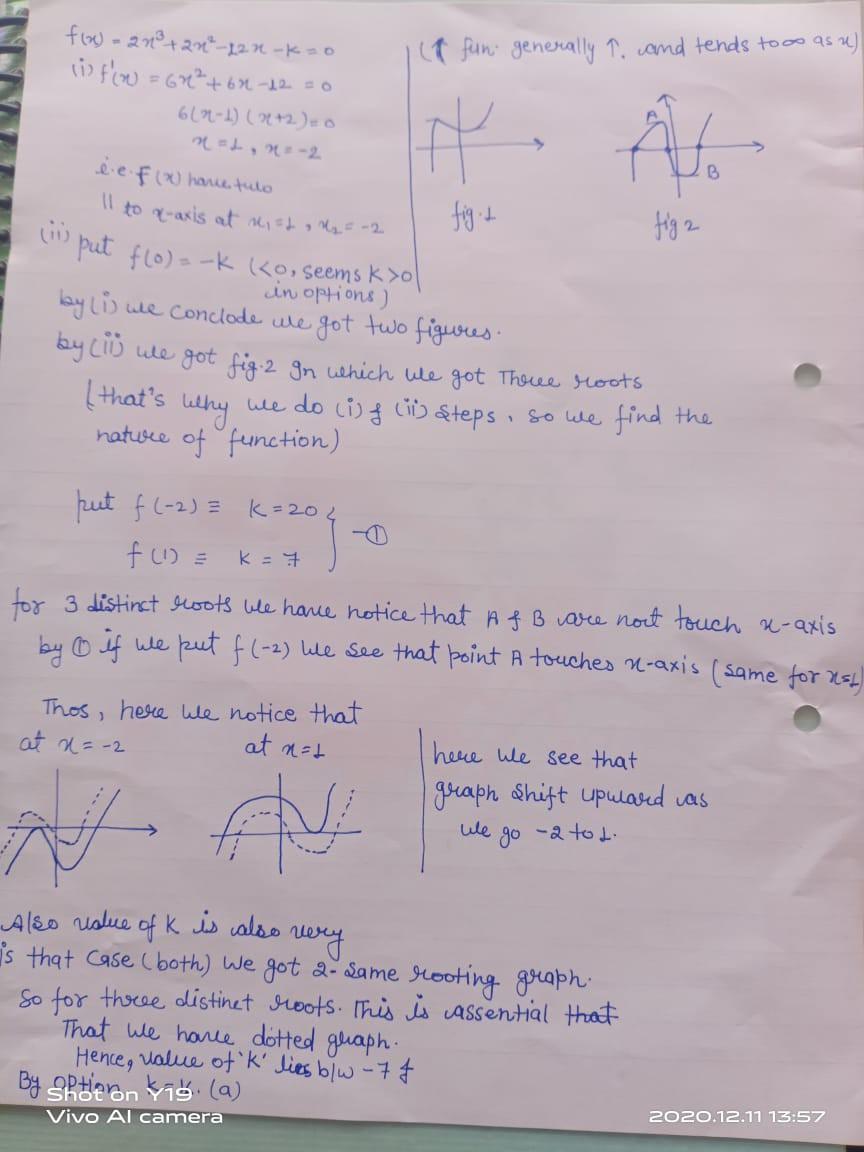 f(x) = 2x³+2x²-12x-k=0
(i) f'(x) = 6x²+6x-12 = 0
6(x-1)(x+2)=0
x=1, x=-2
i.e. f(x) have two
|| to x-axis at x₁=1, x₂=-2
(ii) put f(0) = -K (<0, seems K>0
in options)
(↑ fun. generally ↑. and tends to ∞ as x)
fig.1
A
B
fig 2
by (i) we conclode we got two figures.
by (ii) we got fig.2 In which we got Three roots
(that's why we do (i) & (ii) steps, so we find the
nature of function)
put f(-2) ≡ K=20
f(1) ≡ K = 7
} -①
for 3 distinct roots we have notice that A & B are not touch x-axis
by ① if we put f(-2) we see that point A touches x-axis (same for x=1)
Thos, here we notice that
at x = -2
at x=1
here we see that
graph shift upward as
we go -2 to 1.
Also value of K is also very
is that case (both) we got 2-same rooting graph.
So for three distinct roots. This is assential that
That we have dotted graph.
Hence, value of 'K' lies b/w -7 &
By option (a)
Shot on Y19
Vivo AI camera
2020.12.11 13:57